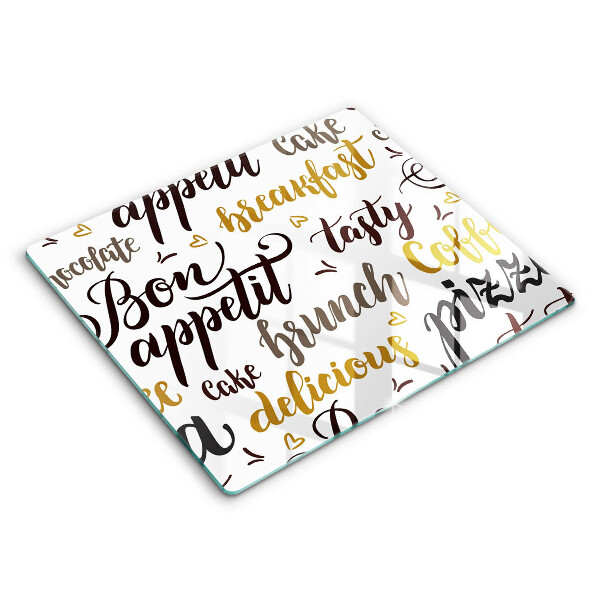 cake
appetit
breakfast
tasty
Coff
chocolate
Bon
appetit
brunch
pizz
cake
delicious